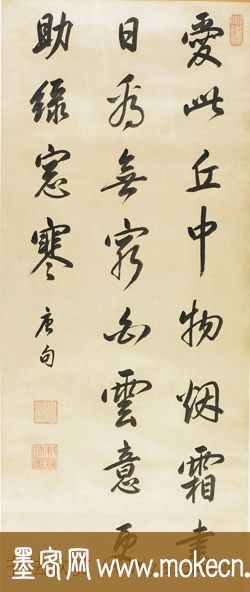 愛此丘中物烟霜盡
日看無窮白雲意更
助綠窓寒
唐句
墨客网 www.mokecn.